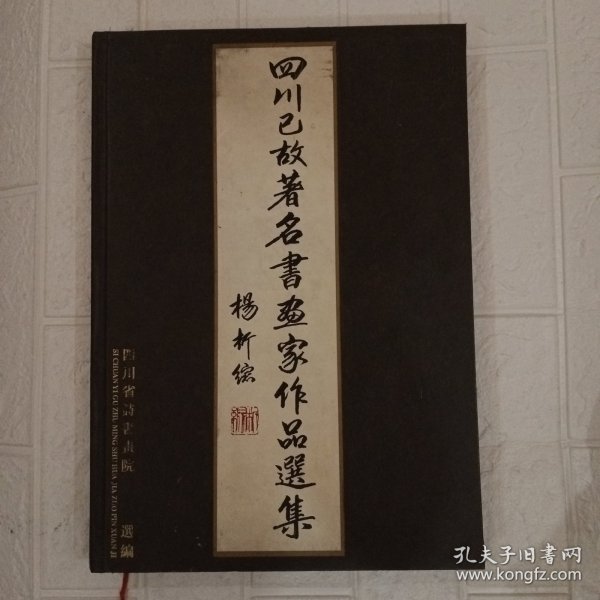 四川已故著名書画家作品選集
楊析綜
四川省詩書畫院 選編
SI CHUAN YI GU ZHU MING SHU HUA JIA ZUO PIN XUAN JI
孔夫子旧书网
www.kongfz.com